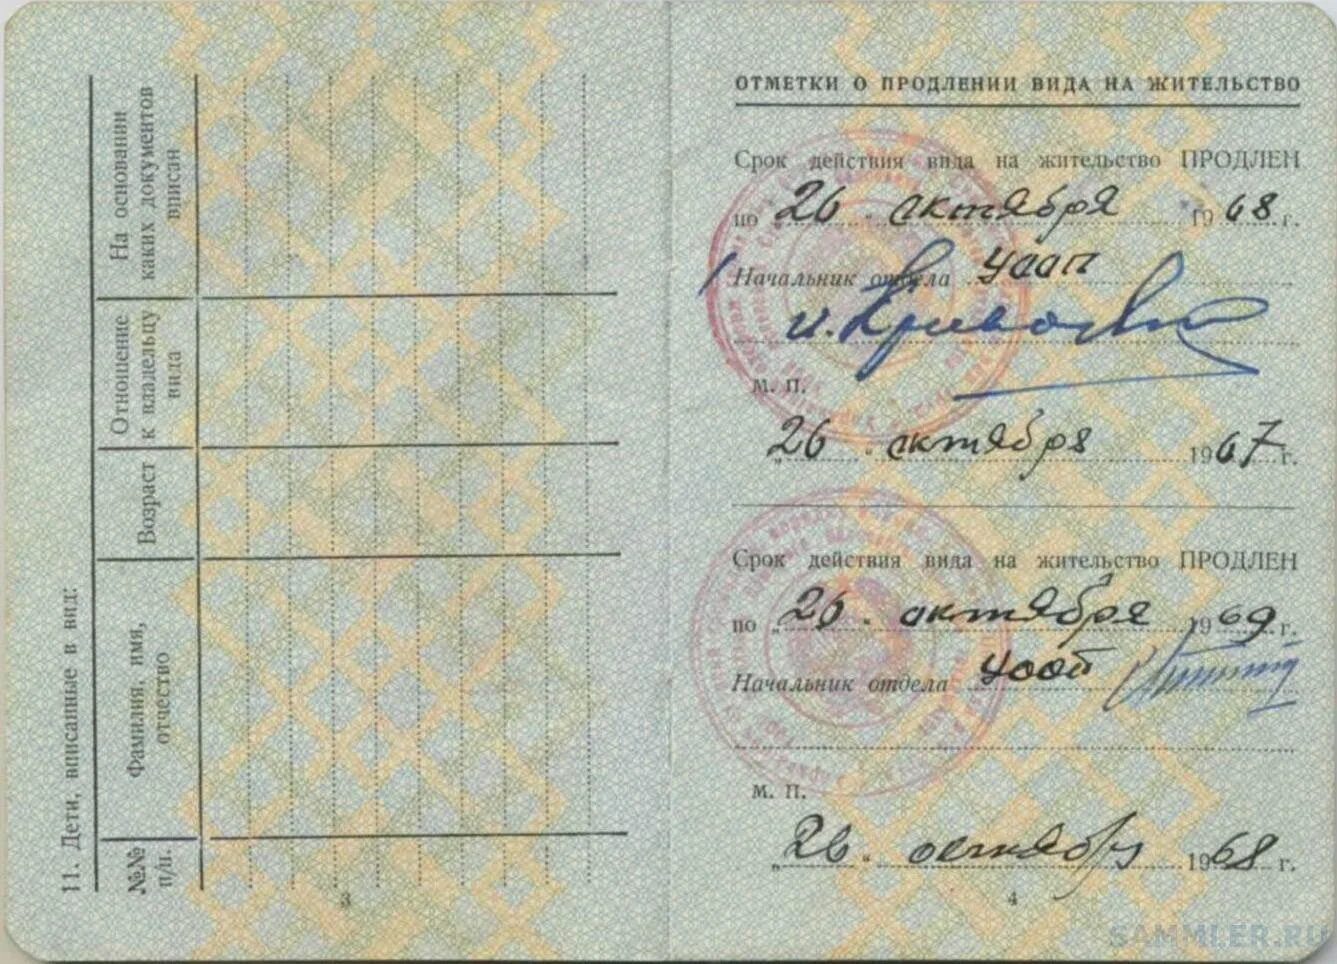 11. Дети, вписанные в вид:
№№ п/п.
Фамилия, имя, отчество
Возраст
Отношение к владельцу вида
На основании каких документов вписан
3
ОТМЕТКИ О ПРОДЛЕНИИ ВИДА НА ЖИТЕЛЬСТВО
Срок действия вида на жительство ПРОДЛЕН
по „26" октября 1968 г.
Начальник отдела
М. П.
„26" октября 1967 г.
Срок действия вида на жительство ПРОДЛЕН
по „26" октября 1969 г.
Начальник отдела
М. П.
„26" октября 1968 г.
4
SAMMLER.RU